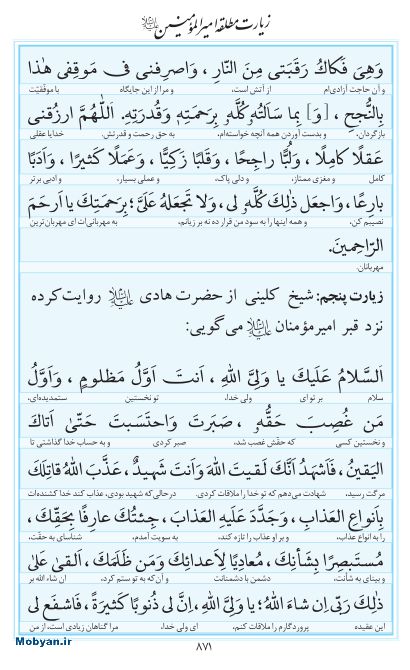 زیارت مطلقه امیرالمؤمنین علیه‌السلام
وَهِیَ فَکاکُ رَقَبَتی مِنَ النّارِ ، وَاصرِفنی فی مَوقِفی هٰذا
و آن حاجت آزادی‌ام از آتش است، و مرا از این جایگاه با موفّقیّت
بِالنُّجحِ ، [وَ] بِما سَاَلتُهو کُلِّهی بِرَحمَتِهی وَقُدرَتِهی. اَللّٰهُمَّ ارزُقنی
بازگردان. و بدست آوردن همه آنچه خواسته‌ام، به حق رحمت و قدرتش. خدایا عقلی
عَقلًا کامِلًا ، وَلُبًّا راجِحًا ، وَقَلبًا زَکِیًّا ، وَعَمَلًا کَثیرًا ، وَاَدَبًا
کامل و مغزی ممتاز، و دلی پاک، و عملی بسیار، و ادبی برتر
بارِعًا ، وَاجعَل ذٰلِکَ کُلَّهو لی ، وَلا تَجعَلهُ عَلَیَّ؛ بِرَحمَتِکَ یا اَرحَمَ
نصیبم کن. و همه اینها را به سود من قرار ده نه بر زیانم. به مهربانی‌ات ای مهربان‌ترین
الرّاحِمینَ.
مهربانان.
زیارت پنجم: شیخ کلینی از حضرت هادی علیه‌السلام روایت کرده
نزد قبر امیرمؤمنان علیه‌السلام می‌گویی:
اَلسَّلامُ عَلَیکَ یا وَلِیَّ اللّٰهِ ، اَنتَ اَوَّلُ مَظلومٍ ، وَاَوَّلُ
سلام بر تو ای ولی خدا، تو نخستین ستمدیده‌ای،
مَن غُصِبَ حَقُّهو ، صَبَرتَ وَاحتَسَبتَ حَتّیٰ اَتاکَ
و نخستین کسی که حقّش غصب شد، صبر کردی و به حساب خدا گذاشتی تا
الیَقینُ ، فَاَشهَدُ اَنَّکَ لَقیتَ اللّٰهَ وَاَنتَ شَهیدٌ ، عَذَّبَ اللّٰهُ قاتِلَکَ
مرگت رسید. شهادت می‌دهم که تو خدا را ملاقات کردی. در حالی‌که شهید بودی، عذاب کند خدا کشنده‌ات
بِاَنواعِ العَذابِ ، وَجَدَّدَ عَلَیهِ العَذابَ ، جِئتُکَ عارِفًا بِحَقِّکَ ،
را به انواع عذاب، و بر او عذاب را تازه کند، به سویت آمدم، شناسای به حقّت،
مُستَبصِرًا بِشَأنِکَ ، مُعادِیًا لِاَعدائِکَ وَمَن ظَلَمَکَ ، اَلقیٰ عَلیٰ
و بینای به شأنت، دشمن با دشمنانت و آن که به تو ستم کرد. ان شاء الله بر
ذٰلِکَ رَبّی اِن شاءَ اللّٰهُ؛ یا وَلِیَّ اللّٰهِ، اِنَّ لی ذُنوبًا کَثیرَةً ، فَاشفَع لی
این عقیده پروردگارم را ملاقات کنم، ای ولی خدا، مرا گناهان زیادی است، از من
۸۷۱
Mobyan.ir